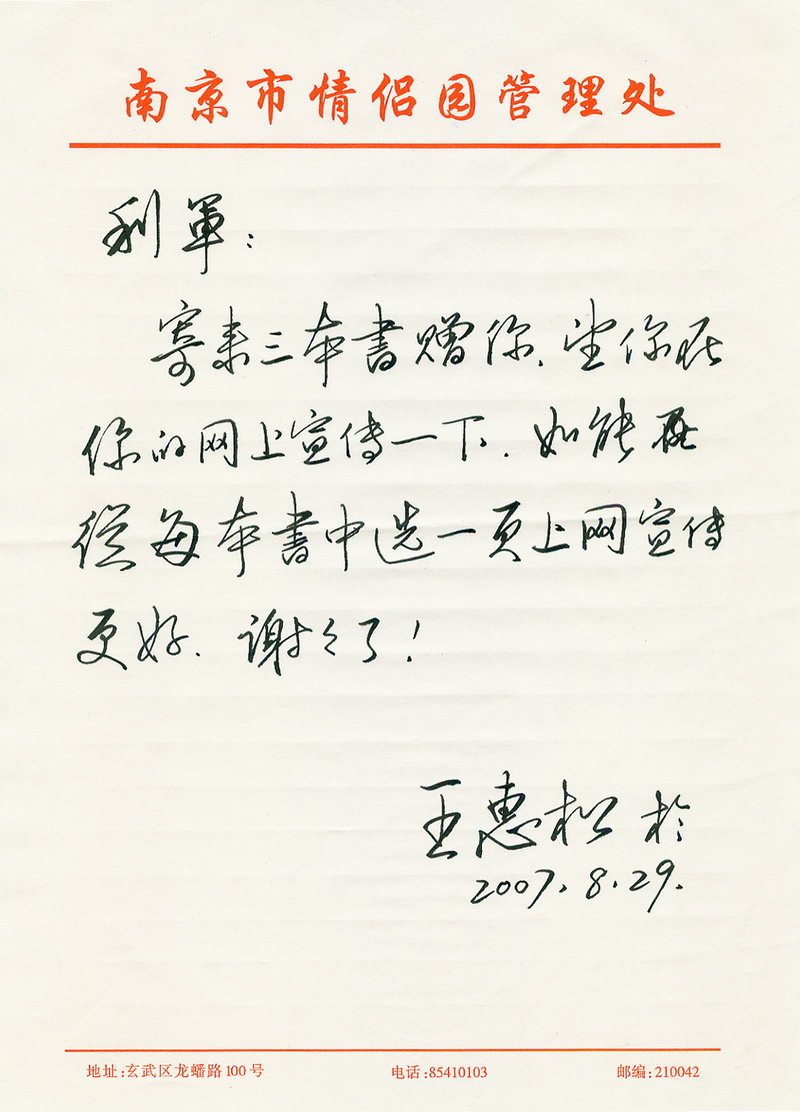 南京市情侣园管理处
利軍：
寄来三本書赠你，望你在
你的网上宣传一下．如能再
從每本書中选一页上网宣传
更好．谢々了！
王惠松 於
2007.8.29.
地址:玄武区龙蟠路100号 电话:85410103 邮编:210042